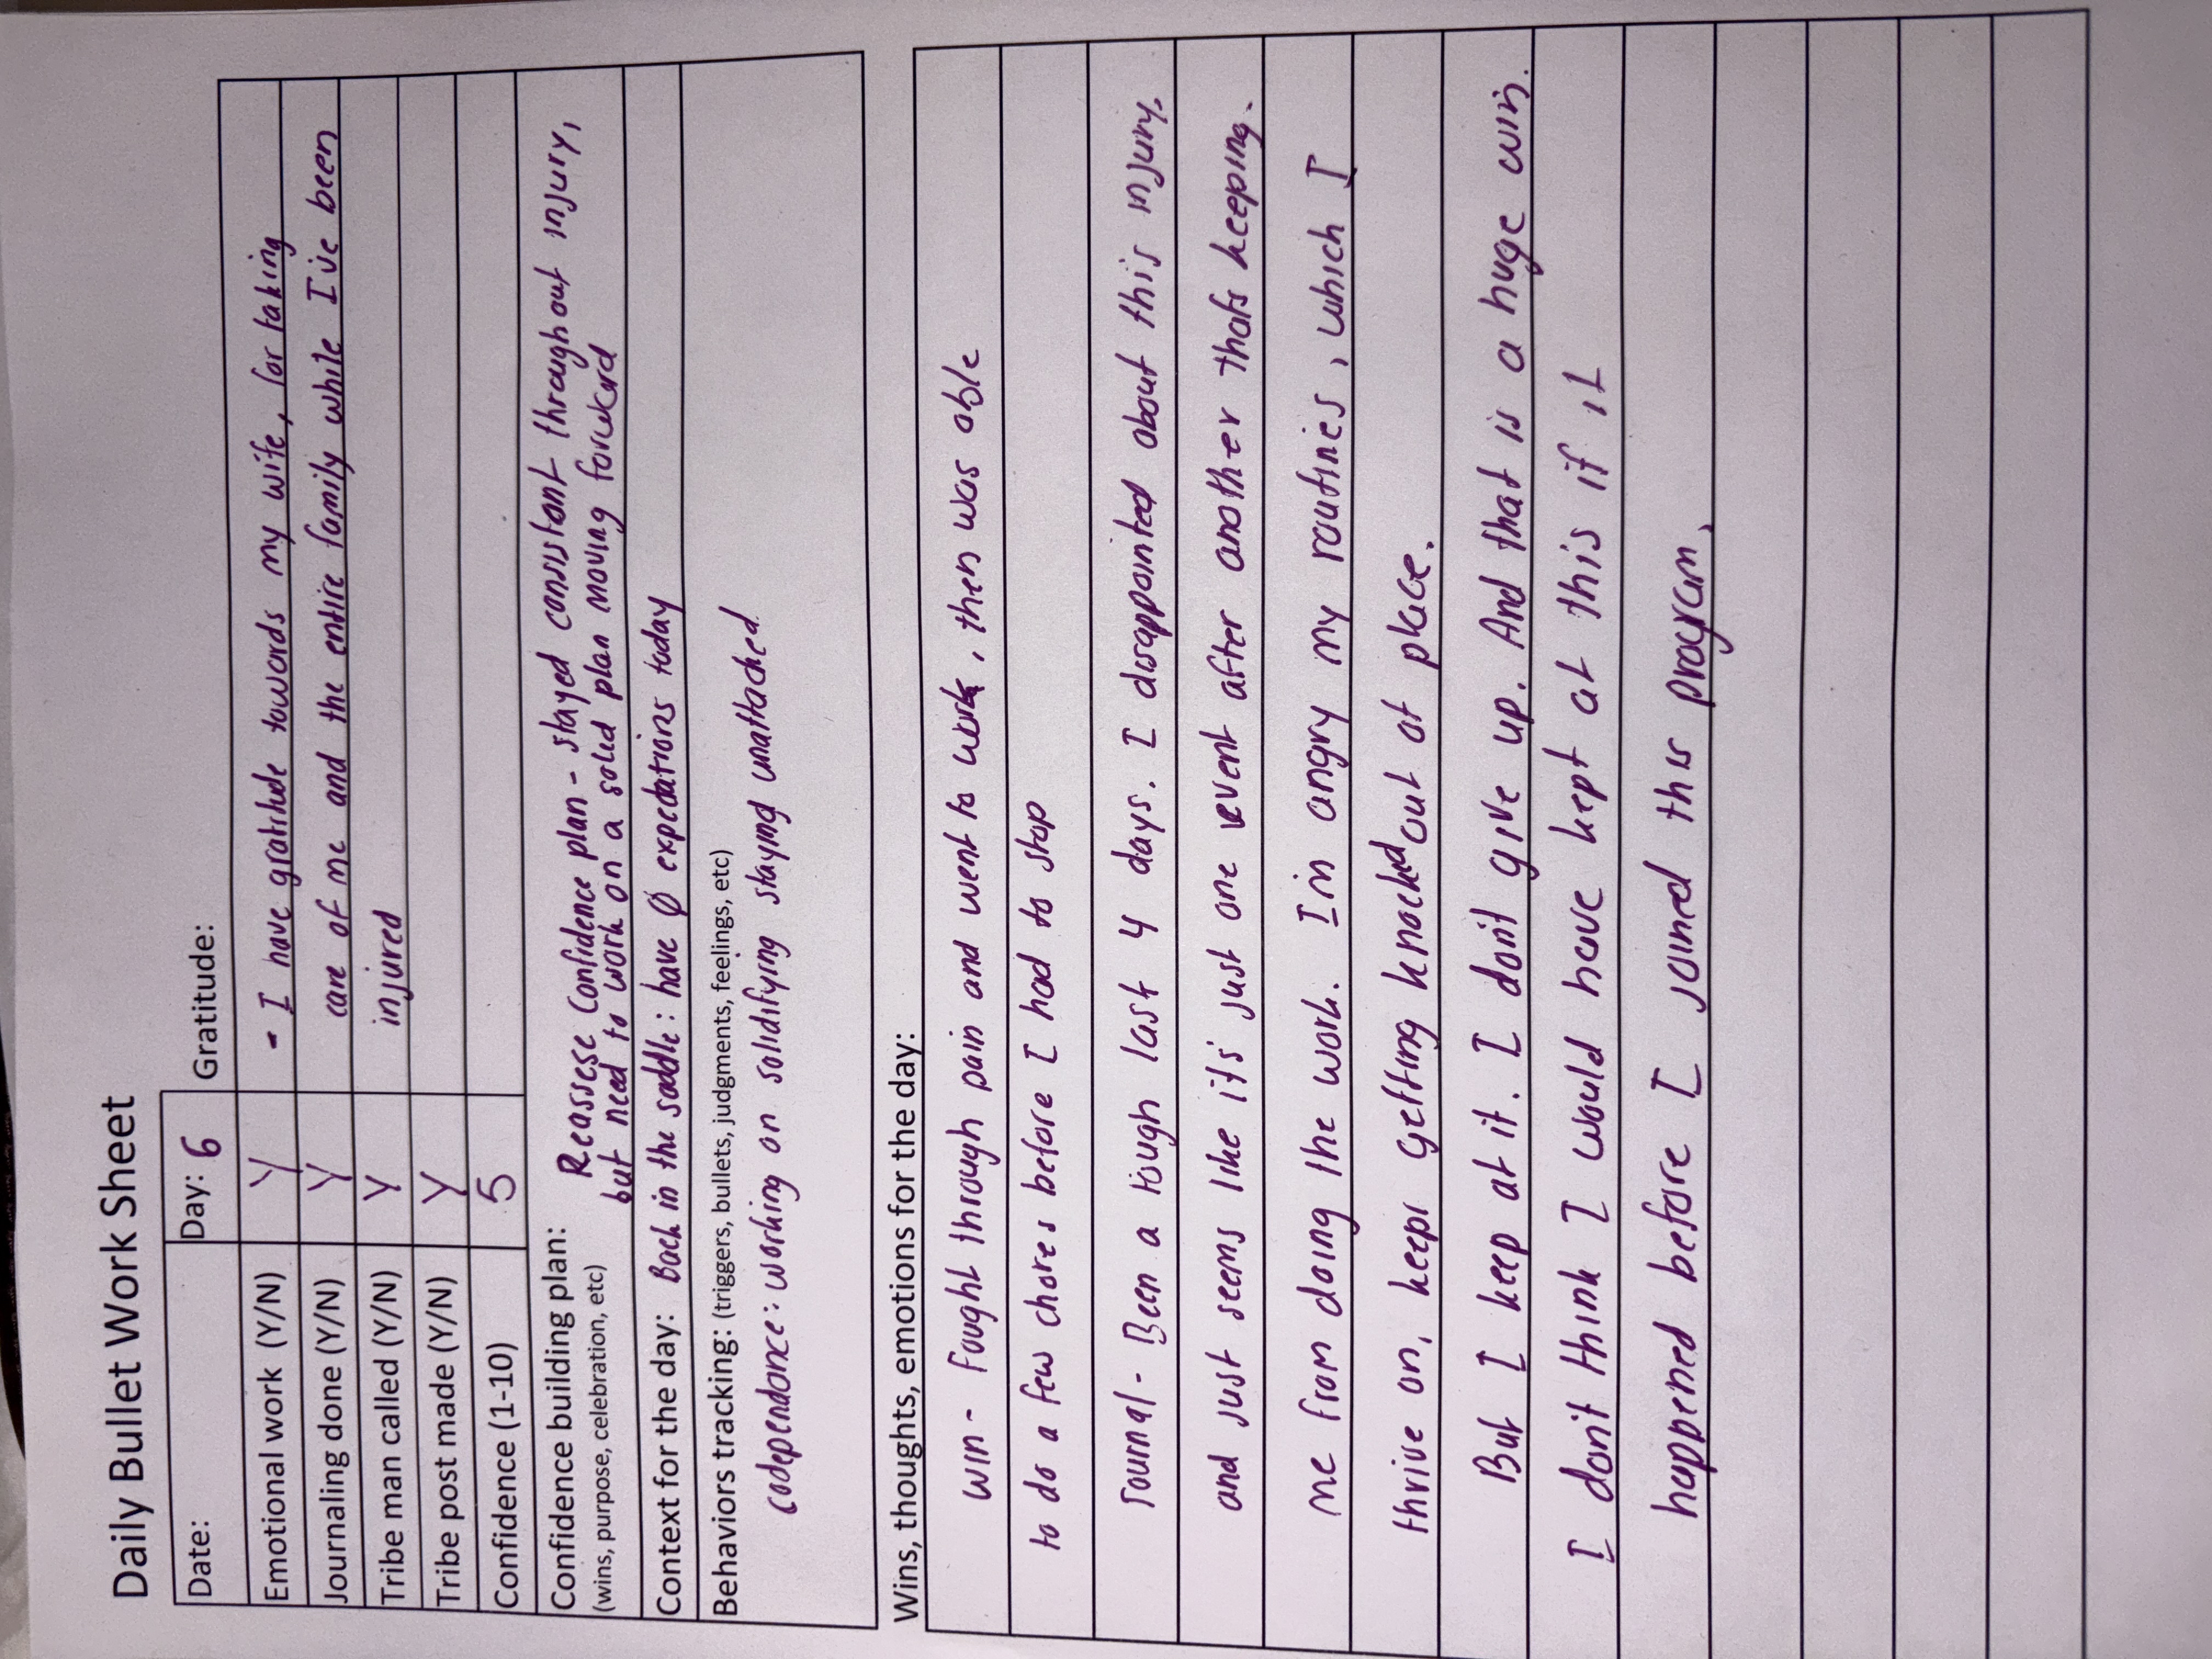 Daily Bullet Work Sheet
Date: Day: 6 Gratitude:
Emotional work (Y/N) Y - I have gratitude towards my wife, for taking
Journaling done (Y/N) Y care of me and the entire family while I've been
Tribe man called (Y/N) Y injured
Tribe post made (Y/N) Y
Confidence (1-10) 5
Confidence building plan: Reassese Confidence plan - stayed consistant throughout injury,
(wins, purpose, celebration, etc) but need to work on a solid plan moving forward
Context for the day: Back in the saddle: have Ø expectations today
Behaviors tracking: (triggers, bullets, judgments, feelings, etc)
codependance: working on solidifying staying unattached
Wins, thoughts, emotions for the day:
win - fought through pain and went to work, then was able
to do a few chores before I had to stop
Journal - Been a tough last 4 days. I disappointed about this injury,
and just seems like it's just one event after another thats keeping.
me from doing the work. I'm angry my routines, which I
thrive on, keeps getting knocked out of place.
But I keep at it. I don't give up. And that is a huge win.
I don't think I would have kept at this if it
happened before I joined this program.